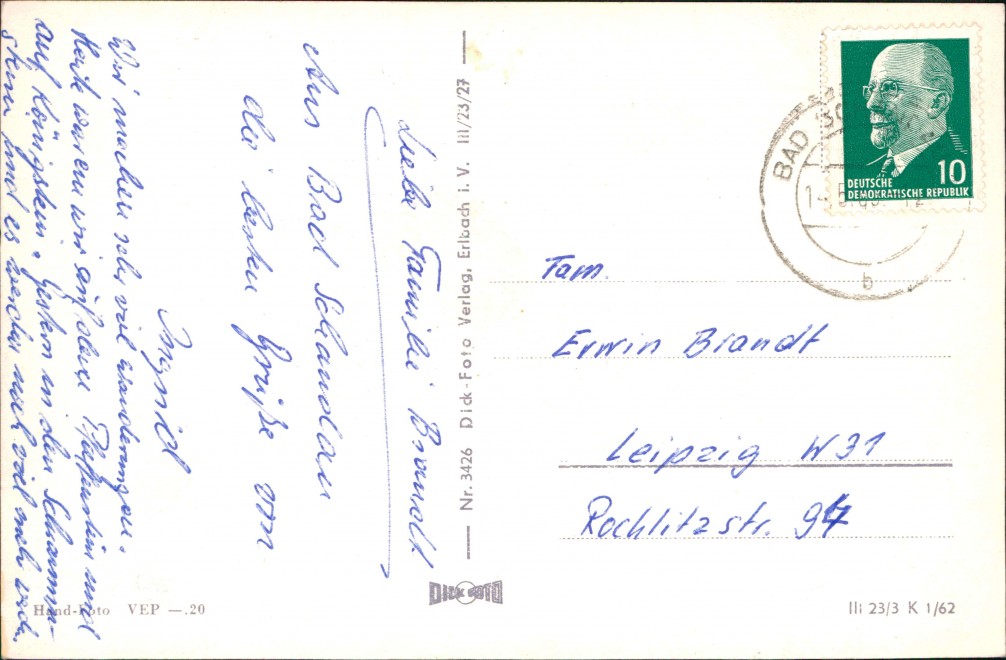 Liebe Familie Brandt
Aus Bad Schandau
die besten Grüße von
Ingrid
Wir machen sehr viel Wanderungen.
Heute waren wir auf dem Pfaffenstein und
auf Königstein. Gestern in den Schramm-
stein und es werden noch viel mehr werd.
Nr. 3426 Dick-Foto Verlag, Erlbach i. V. III/23/27
DICK FOTO
Hand-Foto VEP —.20
BAD
b
10
DEUTSCHE
DEMOKRATISCHE REPUBLIK
Fam.
Erwin Brandt
Leipzig W31
Rochlitzstr.
III 23/3 K 1/62